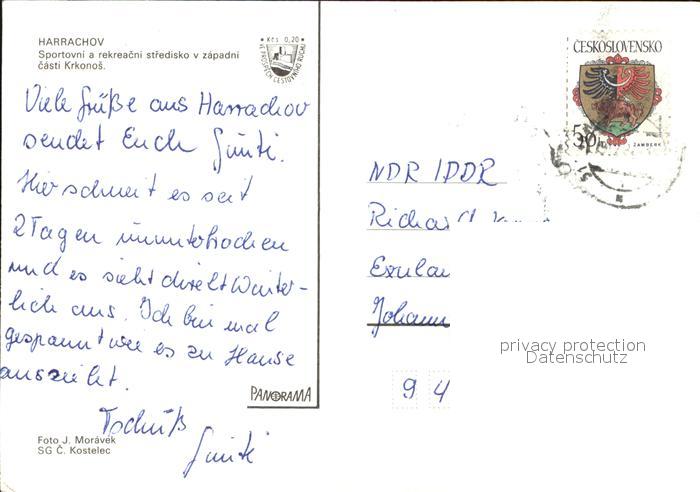 HARRACHOV
Sportovní a rekreační středisko v západní
části Krkonoš.
Kčs 0,20
VE PROSPĚCH CESTOVNÍHO RUCHU
Viele Grüße aus Harrachov
sendet Euch Günti.
Hier schneit es seit
2 Tagen ununterbrochen
und es sieht direkt Winter-
lich aus. Ich bin mal
gespannt wie es zu Hause
aussieht.
Tschüß
Günti
PANORAMA
Foto J. Morávek
SG Č. Kostelec
ČESKOSLOVENSKO
50h
ŽAMBERK
NDR / DDR
Richa
Exulan
Johann
privacy protection
Datenschutz
9 4